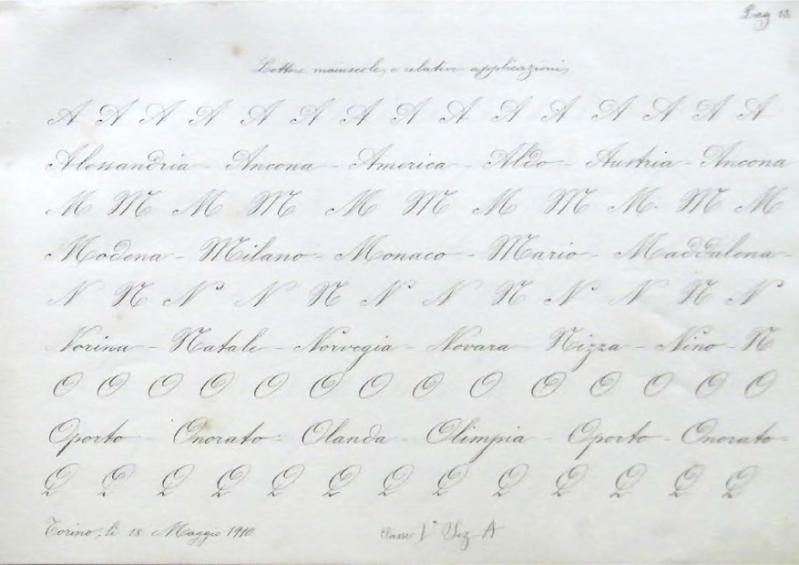 Pag 13.
Lettere maiuscole, e relative applicazioni,
A A A A A A A A A A A A A A A
Alessandria - Ancona - America - Aldo - Austria - Ancona
M M M M M M M M M M M
Modena - Milano - Monaco - Mario - Maddalena -
N N N N N N N N N N N N
Norina - Natale - Norvegia - Novara Nizza - Nino - N
O O O O O O O O O O O O O O
Oporto - Onorato - Olanda - Olimpia - Oporto - Onorato -
Q Q Q Q Q Q Q Q Q Q Q Q Q
Torino, li 18 Maggio 1910 Classe 1ª Sez A